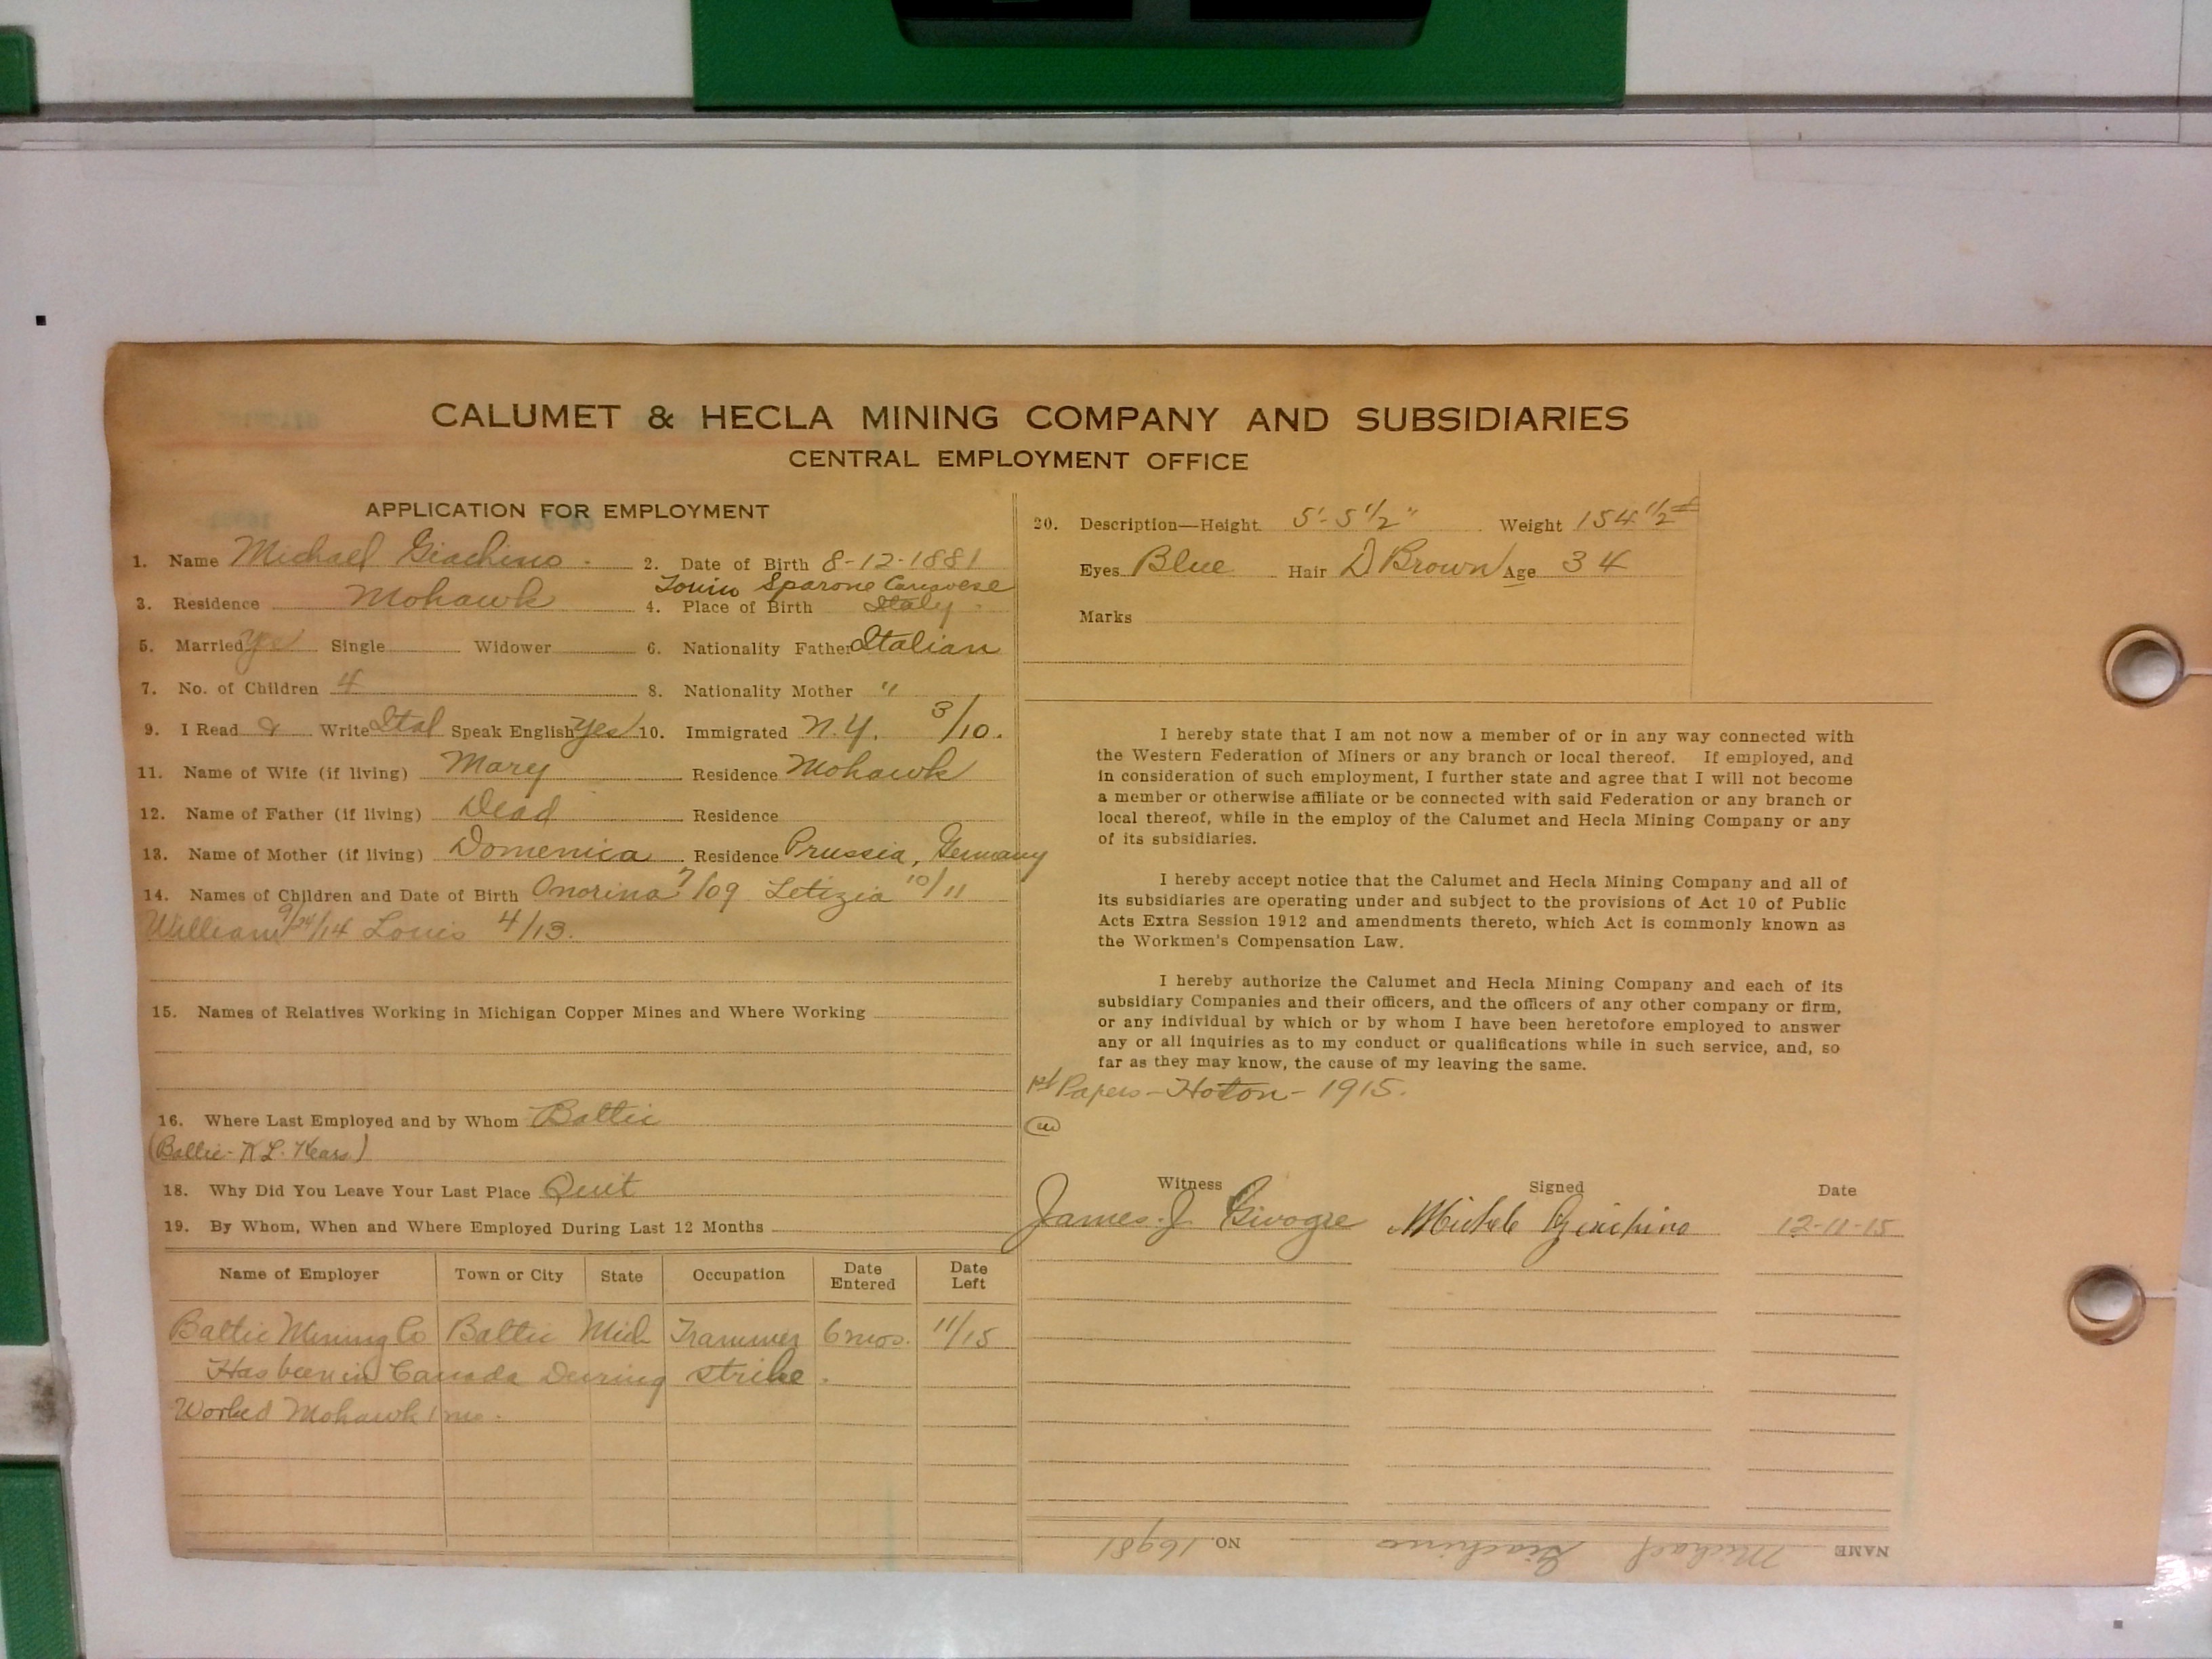 CALUMET & HECLA MINING COMPANY AND SUBSIDIARIES
CENTRAL EMPLOYMENT OFFICE
APPLICATION FOR EMPLOYMENT
1. Name Michael Giachino. 2. Date of Birth 8-12-1881
Sparone Canavese
3. Residence Mohawk 4. Place of Birth Italy
5. Married yes Single Widower 6. Nationality Father Italian
7. No. of Children 4 8. Nationality Mother "
9. I Read & Write Ital Speak English yes 10. Immigrated N.Y. 3/10.
11. Name of Wife (if living) Mary Residence Mohawk
12. Name of Father (if living) Dead Residence
13. Name of Mother (if living) Domenica Residence Prussia, Germany
14. Names of Children and Date of Birth Onorina 7/09 Letizia 10/11
William 9/24/14 Louis 4/13.
15. Names of Relatives Working in Michigan Copper Mines and Where Working
16. Where Last Employed and by Whom Baltic
(Baltic-
18. Why Did You Leave Your Last Place Quit
19. By Whom, When and Where Employed During Last 12 Months
Name of Employer Town or City State Occupation Date Entered Date Left
Baltic Mining Co Baltic Mich Trammer 6 mos. 11/15
Has been in Canada During strike.
Worked Mohawk 1 mo.
20. Description—Height 5'-5 1/2" Weight 154 1/2#
Eyes Blue Hair D Brown Age 34
Marks
I hereby state that I am not now a member of or in any way connected with
the Western Federation of Miners or any branch or local thereof. If employed, and
in consideration of such employment, I further state and agree that I will not become
a member or otherwise affiliate or be connected with said Federation or any branch or
local thereof, while in the employ of the Calumet and Hecla Mining Company or any
of its subsidiaries.
I hereby accept notice that the Calumet and Hecla Mining Company and all of
its subsidiaries are operating under and subject to the provisions of Act 10 of Public
Acts Extra Session 1912 and amendments thereto, which Act is commonly known as
the Workmen's Compensation Law.
I hereby authorize the Calumet and Hecla Mining Company and each of its
subsidiary Companies and their officers, and the officers of any other company or firm,
or any individual by which or by whom I have been heretofore employed to answer
any or all inquiries as to my conduct or qualifications while in such service, and, so
far as they may know, the cause of my leaving the same.
1st Papers-Hoton-1915.
Witness Signed Date
James. J. Michele Giachino 12-11-15
NAME Michael Giachino NO. 16981